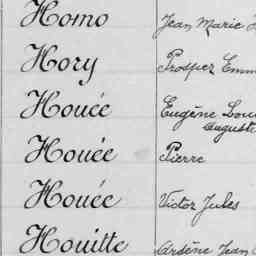 Homo Jean Marie
Hory Prosper Emm
Houée Eugène Loui
Auguste
Houée Pierre
Houée Victor Jules
Houitte Arsène Jean